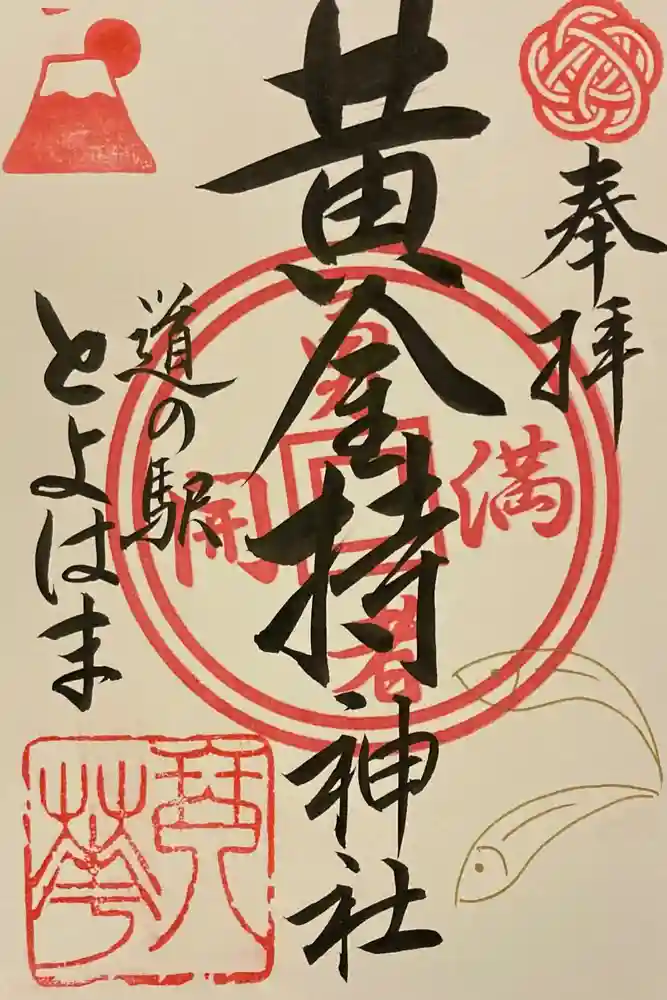 奉拝
黄金持神社
満
開
者
道の駅
とよはま